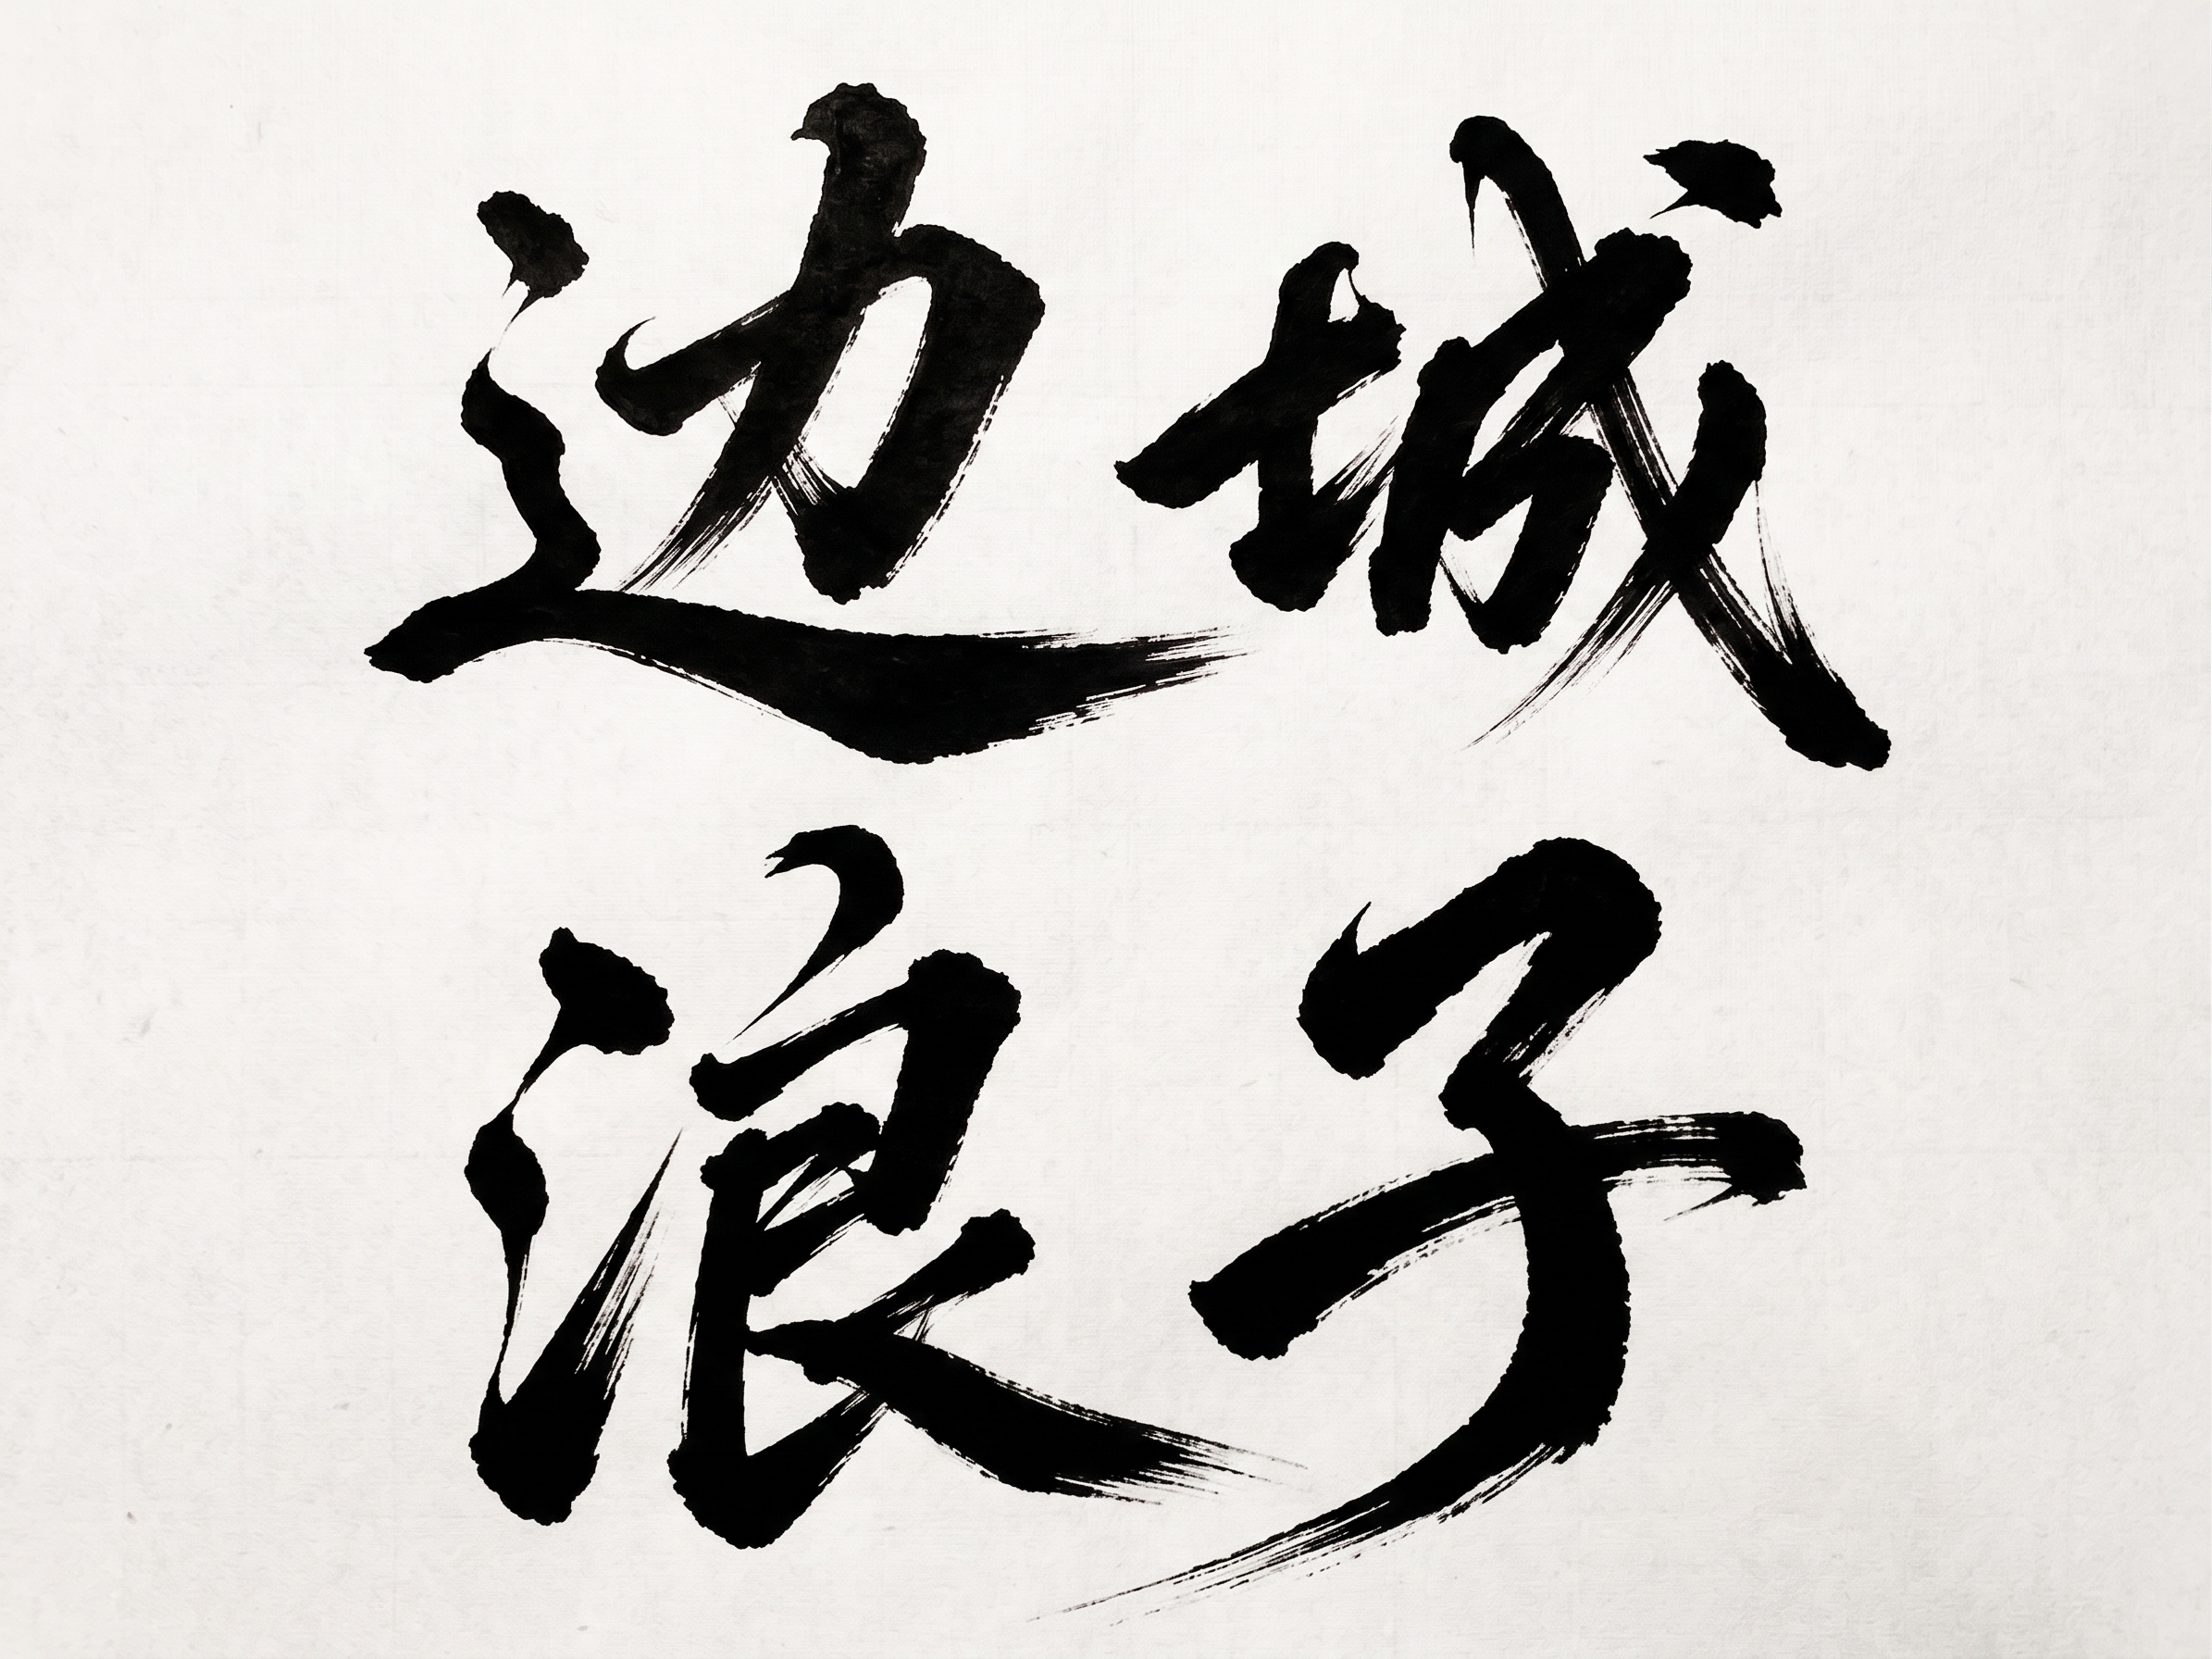 边城
浪子